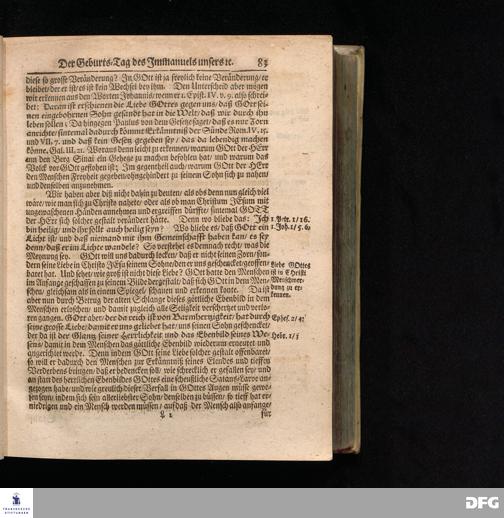 Der Geburts-Tag des Immanuels unsers ꝛc. 83
diese so grosse Veränderung? In GOtt ist ja freylich keine Veränderung/ er
bleibet/ der er ist/ es ist kein Wechsel bey ihm. Den Unterscheid aber mögen
wir erkennen aus den Worten Johannis/ wenn er 1. Epist. IV. v. 9. also schrei-
bet: Daran ist erschienen die Liebe GOttes gegen uns/ daß GOtt sei-
nen eingebohrnen Sohn gesandt hat in die Welt/ daß wir durch ihn
leben sollen: Da hingegen Paulus von dem Gesetze saget/ daß es nur Zorn
anrichte/ sintemal dadurch komme Erkänntniß der Sünde Rom. IV. 15.
und VII. 7. und daß kein Gesetz gegeben sey/ das da lebendig machen
könne. Gal. III. 21. Woraus denn leicht zu erkennen/ warum GOtt der HErr
um den Berg Sinai ein Gehege zu machen befohlen hat/ und warum das
Volck vor GOtt geflohen ist: Im gegentheil auch/ warum GOtt der HErr
den Menschen Freyheit gegeben/ ohngehindert zu seinem Sohn sich zu nahen/
und denselben anzunehmen.
Wir haben aber diß nicht dahin zu deuten/ als obs denn nun gleich viel
wäre/ wie man sich zu Christo nahete/ oder als ob man Christum JEsum mit
ungewaschenen Händen annehmen und ergreiffen dürffte/ sintemal GOTT
der HErr sich solcher gestalt verändert hätte. Denn wo bliebe das: Ich
bin heilig/ und ihr sollt auch heilig seyn? Wo bliebe es/ daß GOtt ein
Licht ist/ und daß niemand mit ihm Gemeinschafft haben kan/ es sey
denn/ daß er im Lichte wandele? So verstehet es demnach recht/ was die
Meynung sey. GOtt will uns dadurch locken/ daß er nicht seinen Zorn/ son-
dern seine Liebe in Christo JEsu seinem Sohne/ den er uns geschencket/ geoffen-
baret hat. Und sehet/ wie groß ist nicht diese Liebe? GOtt hatte den Menschen
im Anfange geschaffen zu seinem Bilde dergestalt/ daß sich GOtt in dem Men-
schen/ gleichsam als in einem Spiegel/ schauen und erkennen konte. Da ist
aber nun durch Betrug der alten Schlange dieses göttliche Ebenbild in dem
Menschen erloschen/ und damit zugleich alle Seligkeit verschertzet und verlo-
ren gangen. GOtt aber/ der da reich ist von Barmhertzigkeit/ hat durch
seine grosse Liebe/ damit er uns geliebet hat/ uns seinen Sohn geschencket/
der da ist der Glantz seiner Herrlichkeit und das Ebenbild seines We-
sens/ damit in dem Menschen das göttliche Ebenbild wiederum erneuret und
angerichtet werde. Denn indem GOtt seine Liebe solcher gestalt offenbaret/
so will er dadurch den Menschen zur Erkänntniß seines Elendes und tieffen
Verderbens bringen/ daß er bedencken soll/ wie schrecklich er gefallen sey/ und
an statt des herrlichen Ebenbildes GOttes eine scheußliche Satans-Larve an-
gezogen habe/ und wie greulich dieser Verfall in GOttes Augen müsse gewe-
sen seyn/ indem sich sein allerliebster Sohn/ denselben zu büssen/ so tieff hat er-
niedrigen und ein Mensch werden müssen/ auf daß der Mensch also anfange/
L 2 für
1. Petr. 1/16.
1. Joh. 1/5. 6.
Liebe GOttes
ist in Christi
Menschwer-
dung zu er-
kennen.
Ephes. 2/4.
Hebr. 1/3
FRANCKESCHE
STIFTUNGEN
DFG